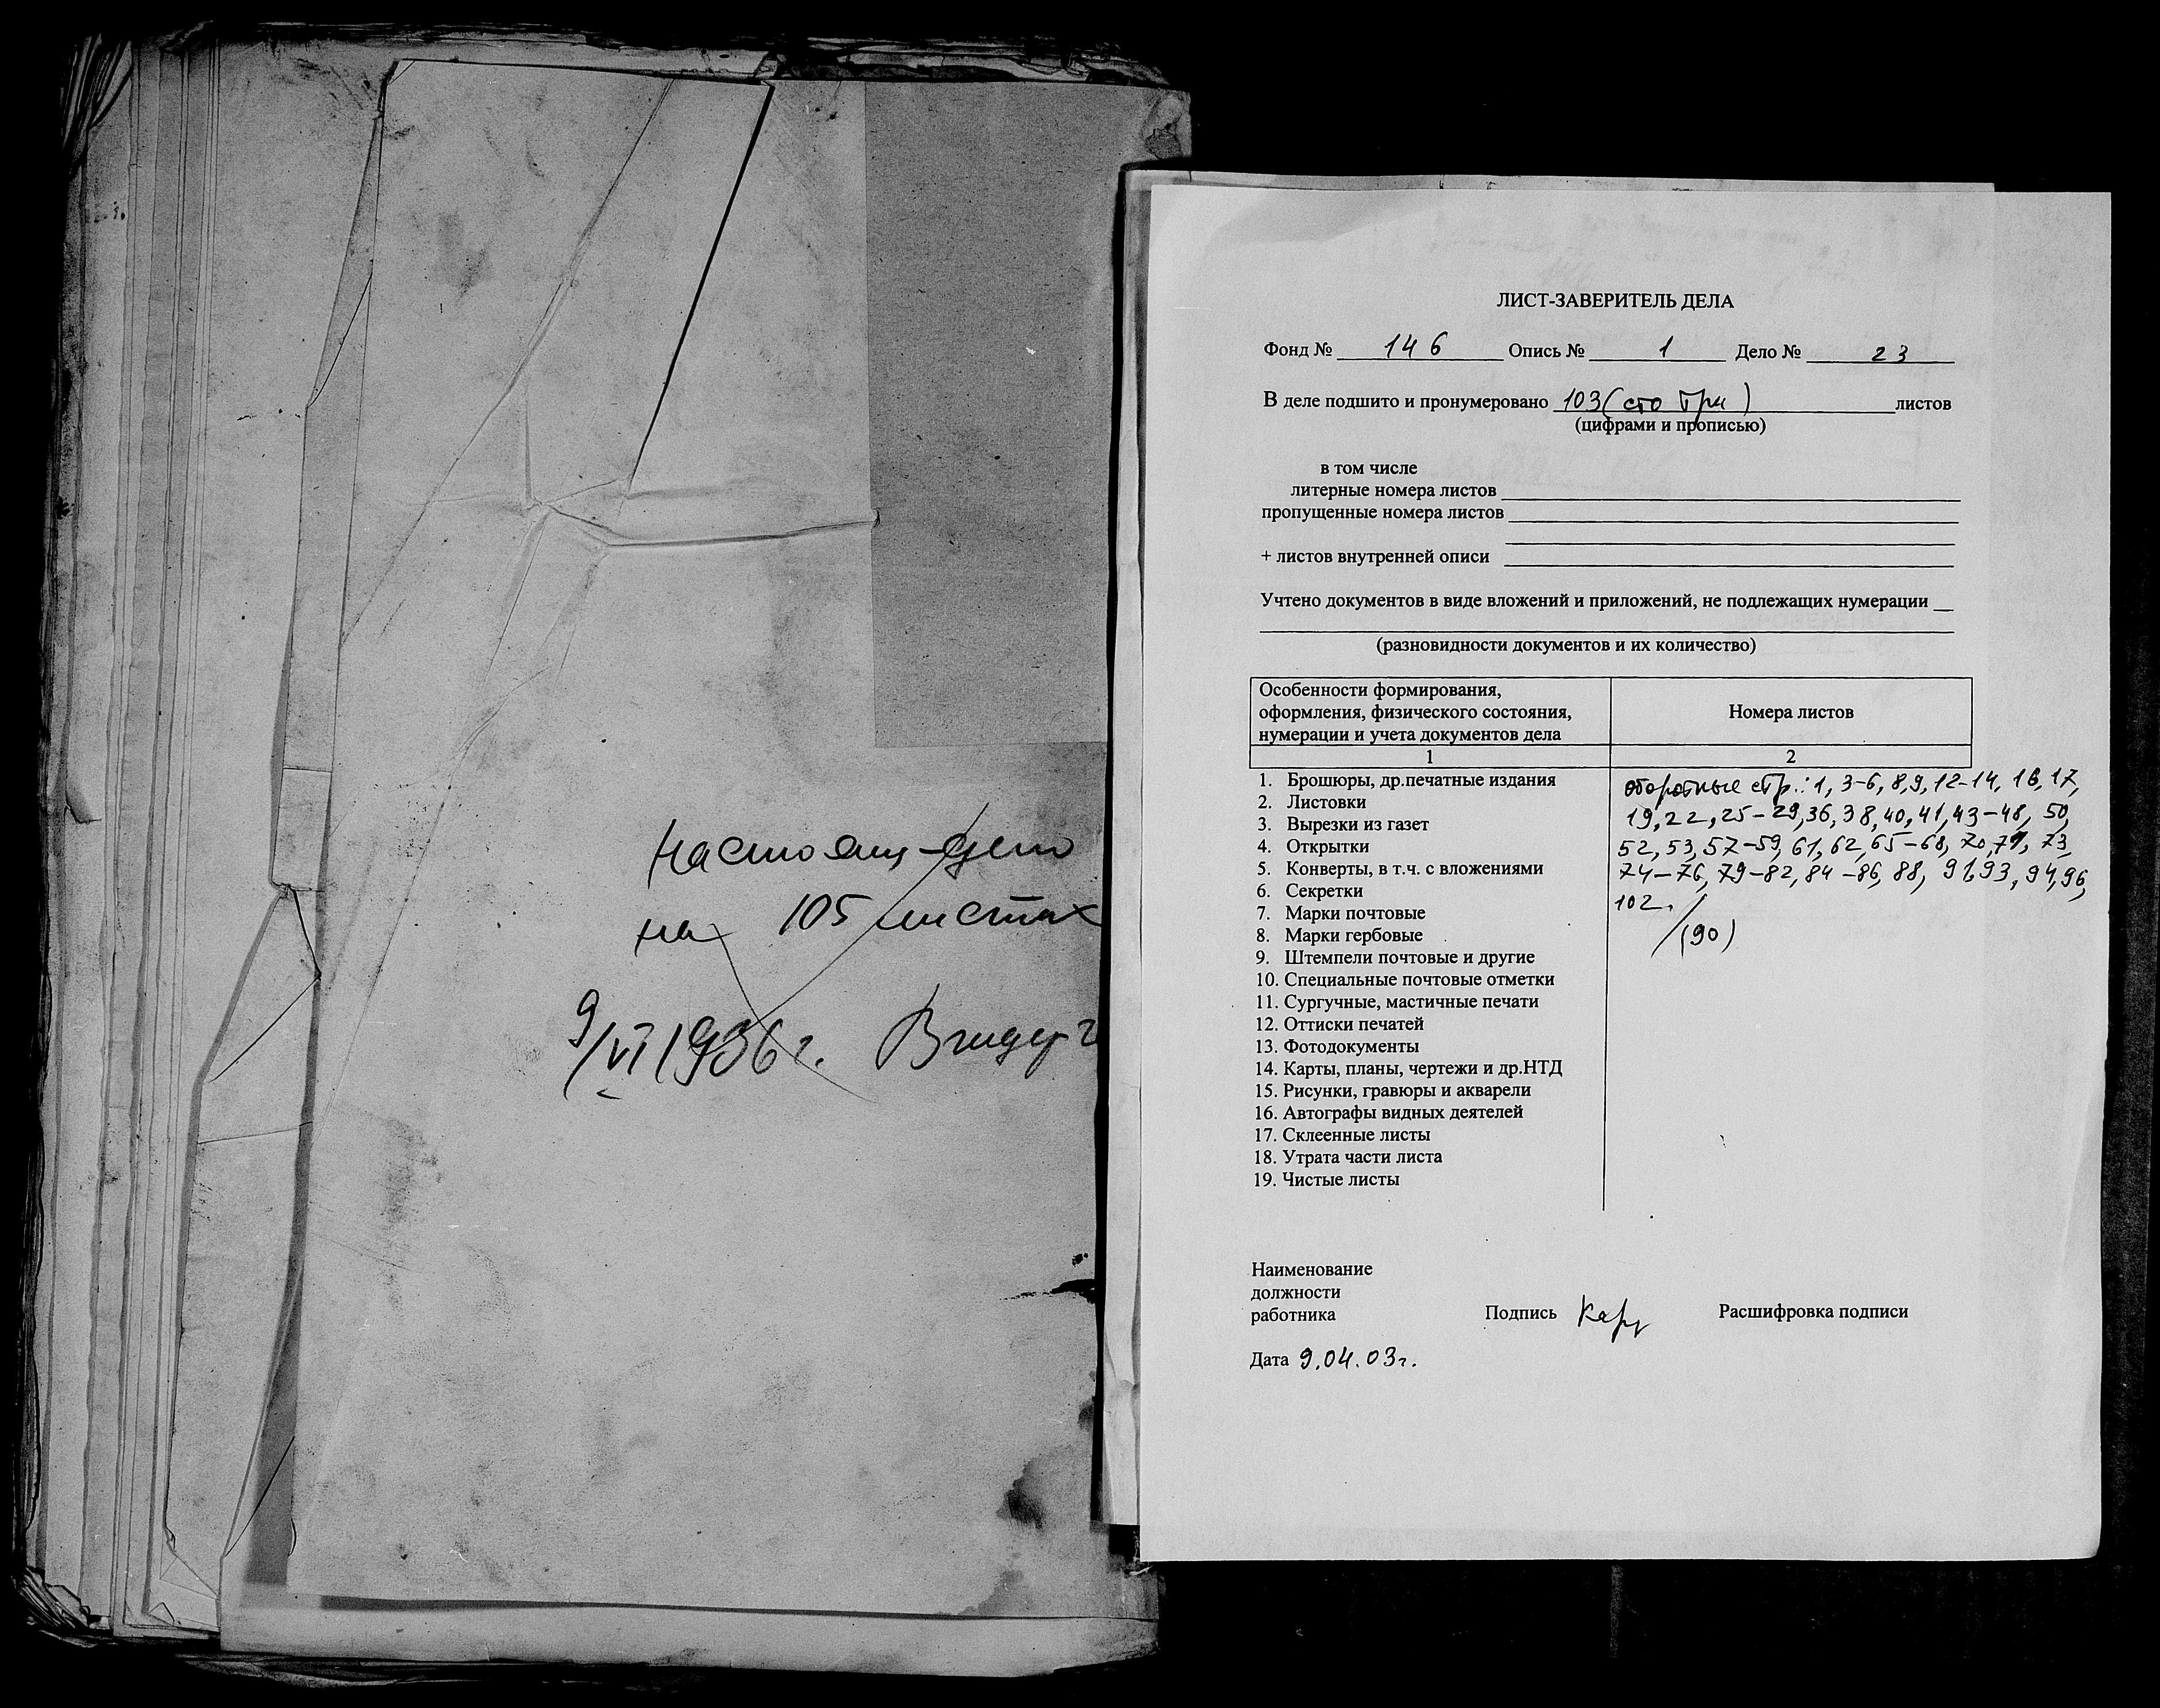 настоящ дело
на 105 листах
9/VI 1936 г.
ЛИСТ-ЗАВЕРИТЕЛЬ ДЕЛА
Фонд № 146 Опись № 1 Дело № 23
В деле подшито и пронумеровано 103 (сто три) листов
(цифрами и прописью)
в том числе
литерные номера листов
пропущенные номера листов
+ листов внутренней описи
Учтено документов в виде вложений и приложений, не подлежащих нумерации
(разновидности документов и их количество)
Особенности формирования,
оформления, физического состояния,
нумерации и учета документов дела
Номера листов
1 2
1. Брошюры, др.печатные издания
2. Листовки
3. Вырезки из газет
4. Открытки
5. Конверты, в т.ч. с вложениями
6. Секретки
7. Марки почтовые
8. Марки гербовые
9. Штемпели почтовые и другие
10. Специальные почтовые отметки
11. Сургучные, мастичные печати
12. Оттиски печатей
13. Фотодокументы
14. Карты, планы, чертежи и др.НТД
15. Рисунки, гравюры и акварели
16. Автографы видных деятелей
17. Склеенные листы
18. Утрата части листа
19. Чистые листы
оборотные стр.: 1, 3-6, 8,9, 12-14, 16, 17,
19, 22, 25-29, 36, 38, 40, 41, 43-48, 50,
52, 53, 57-59, 61, 62, 65-68, 70, 71, 73,
74-76, 79-82, 84-86, 88, 91, 93, 94, 96,
102.
(90)
Наименование
должности
работника Подпись Расшифровка подписи
Дата 9.04.03г.